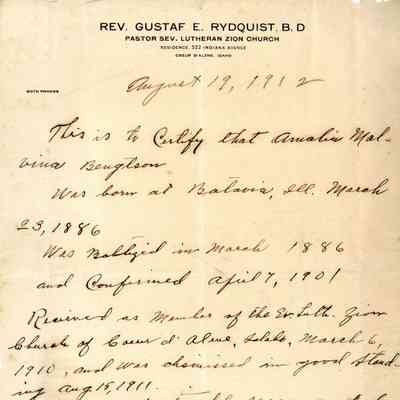 REV. GUSTAF E. RYDQUIST, B. D
PASTOR SEV. LUTHERAN ZION CHURCH
RESIDENCE, 522 INDIANA AVENUE
COEUR D'ALENE, IDAHO
BOTH PHONES
August 19, 1912
This is to Certify that Amalia Mal-
vina Bengtson
Was born at Batavia, Ill. March
23, 1886
Was Babtized in March 1886
and Confirmed April 7, 1901
Received as Member of the Ev. Luth. Zion
Church of Coeur d' Alene, Idaho, March 6,
1910, and was dismissed in good stand-
ing Aug 15, 1911.